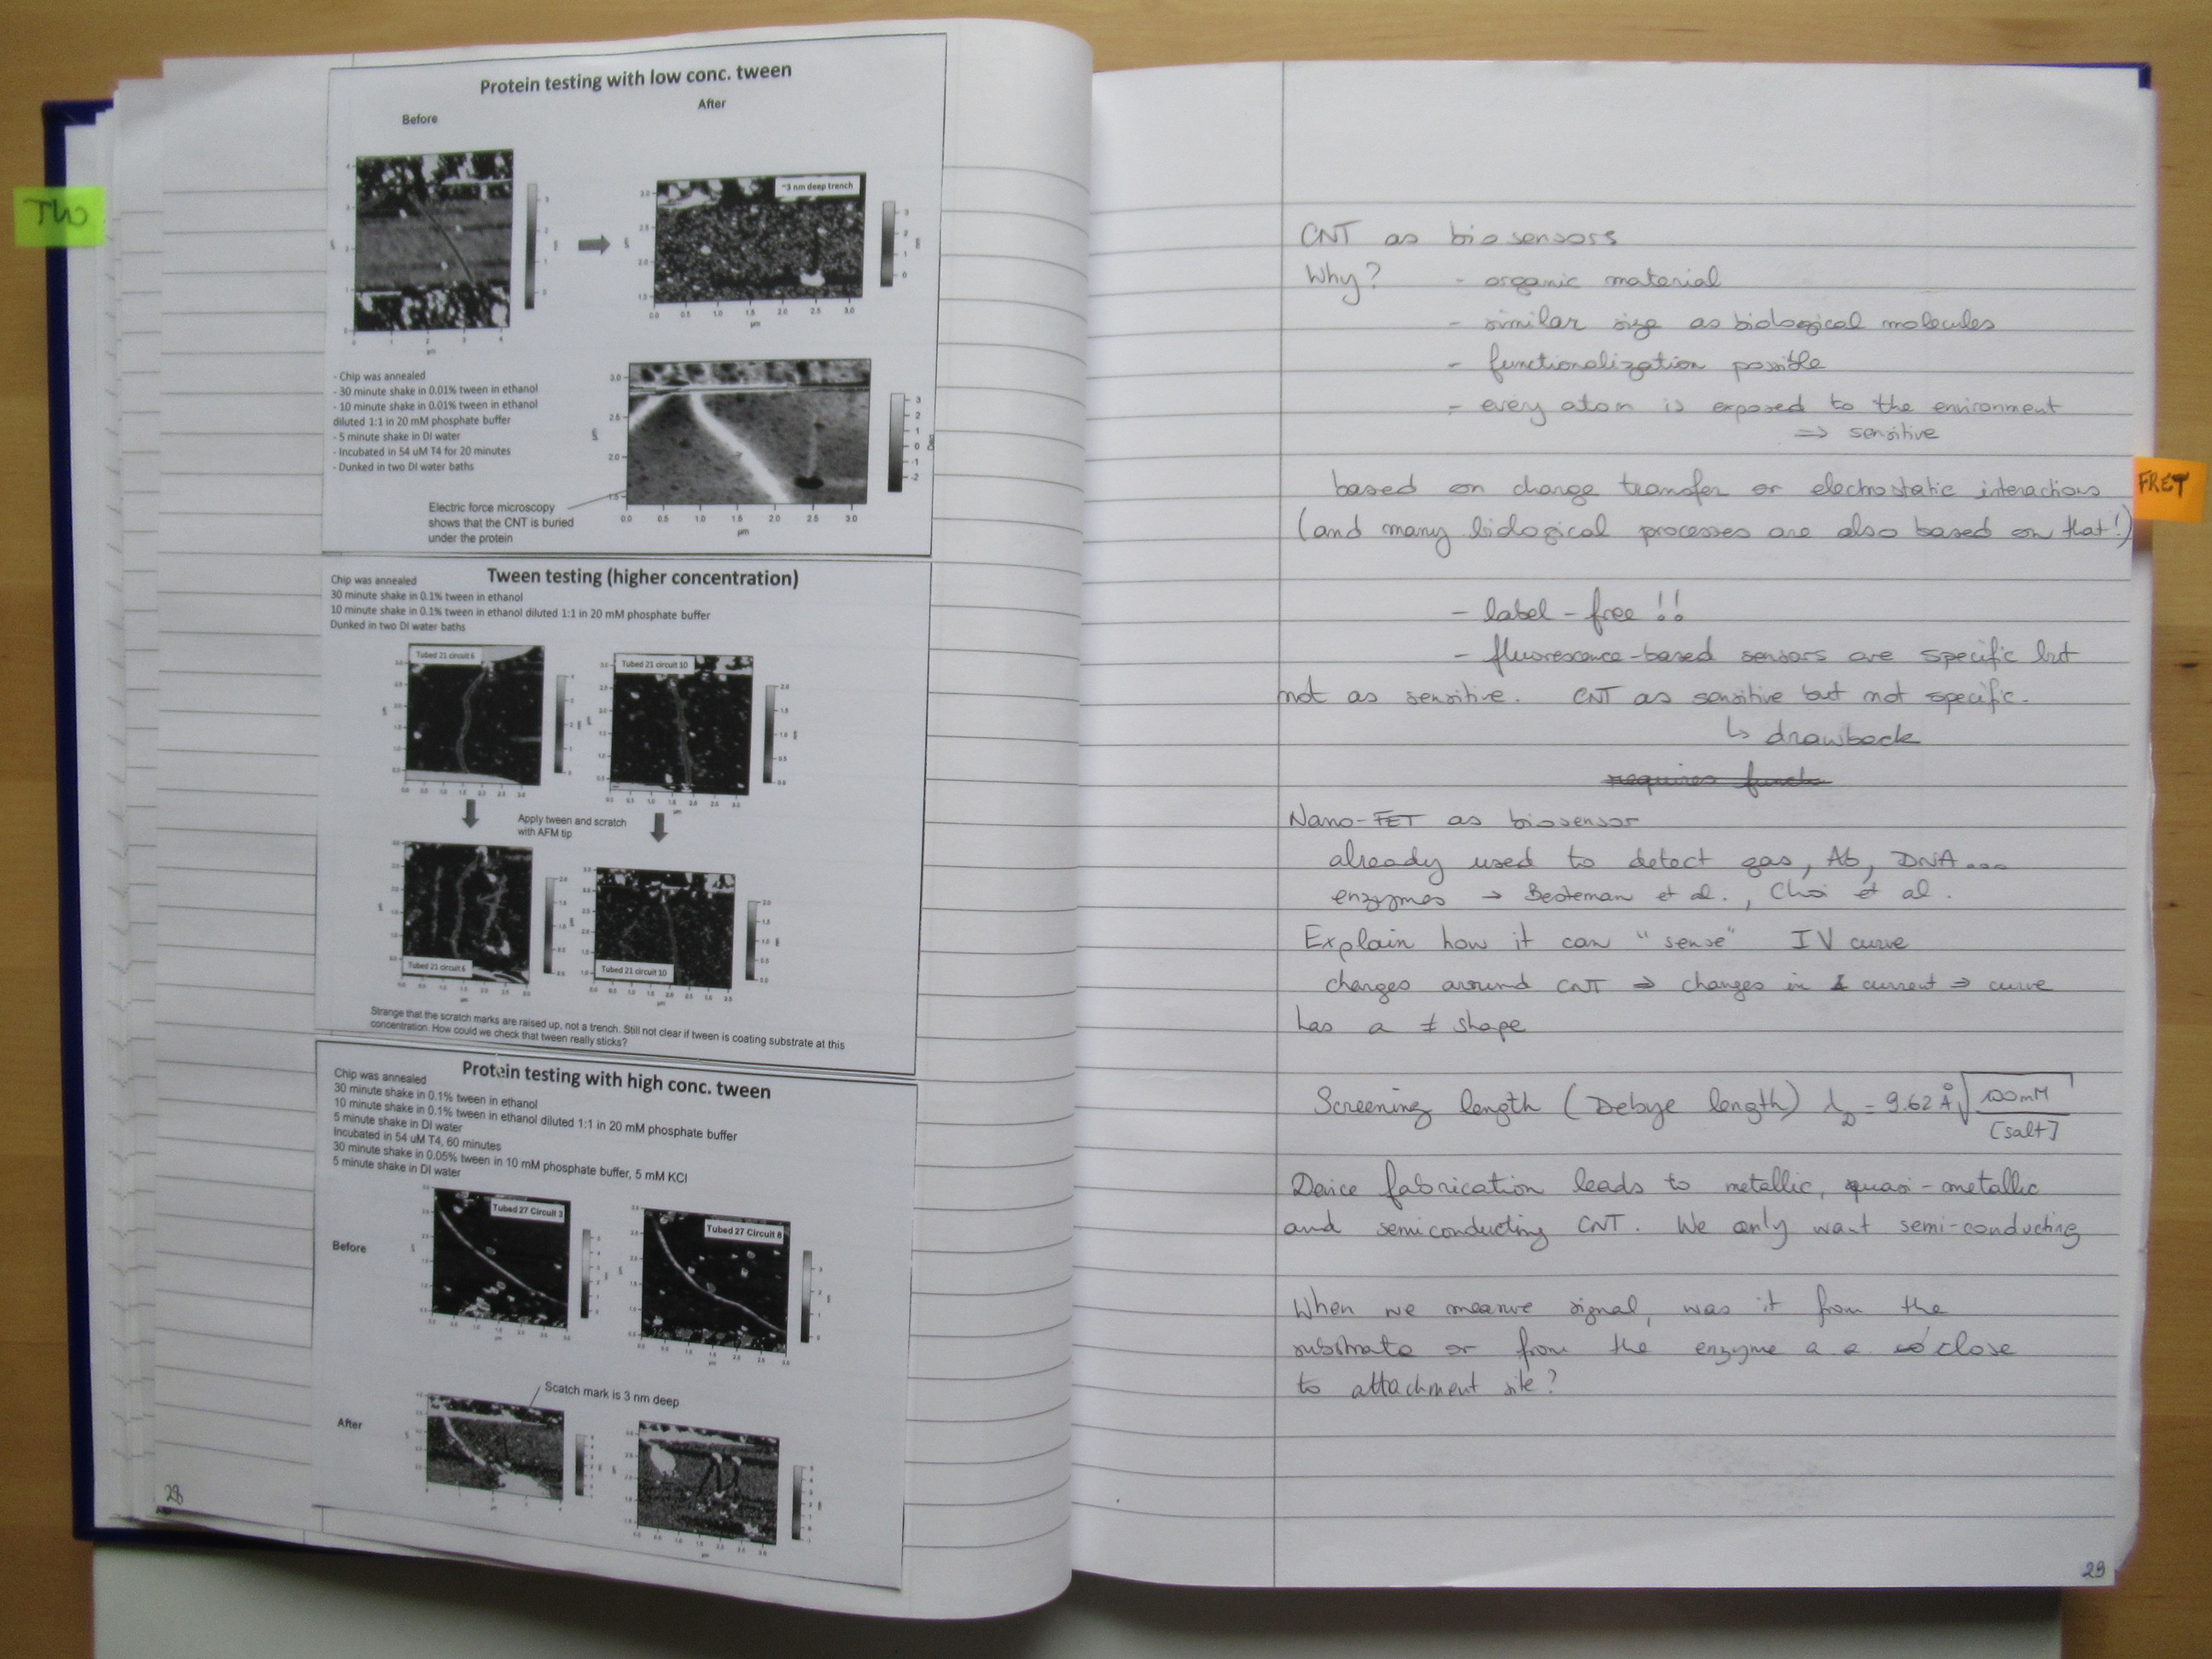 TW
Protein testing with low conc. tween
Before
After
~3 nm deep trench
- Chip was annealed
- 30 minute shake in 0.01% tween in ethanol
- 10 minute shake in 0.01% tween in ethanol
diluted 1:1 in 20 mM phosphate buffer
- 5 minute shake in DI water
- Incubated in 54 uM T4 for 20 minutes
- Dunked in two DI water baths
Electric force microscopy
shows that the CNT is buried
under the protein
Tween testing (higher concentration)
Chip was annealed
30 minute shake in 0.1% tween in ethanol
10 minute shake in 0.1% tween in ethanol diluted 1:1 in 20 mM phosphate buffer
Dunked in two DI water baths
Tubed 21 circuit 6
Tubed 21 circuit 10
Apply tween and scratch
with AFM tip
Tubed 21 circuit 6
Tubed 21 circuit 10
Strange that the scratch marks are raised up, not a trench. Still not clear if tween is coating substrate at this
concentration. How could we check that tween really sticks?
Protein testing with high conc. tween
Chip was annealed
30 minute shake in 0.1% tween in ethanol
10 minute shake in 0.1% tween in ethanol diluted 1:1 in 20 mM phosphate buffer
5 minute shake in DI water
Incubated in 54 uM T4, 60 minutes
30 minute shake in 0.05% tween in 10 mM phosphate buffer, 5 mM KCl
5 minute shake in DI water
Before
Tubed 27 Circuit 3
Tubed 27 Circuit 8
Scatch mark is 3 nm deep
After
28
CNT as biosensors
Why? - organic material
- similar size as biological molecules
- functionalization possible
- every atom is exposed to the environment
⇒ sensitive
based on charge transfer or electrostatic interactions
(and many biological processes are also based on that!)
FRET
- label-free !!
- fluorescence-based sensors are specific but
not as sensitive. CNT as sensitive but not specific.
↳ drawback
requires funct
Nano-FET as biosensor
already used to detect gas, Ab, DNA...
enzymes → Besteman et al., Choi et al.
Explain how it can "sense" IV curve
changes around CNT ⇒ changes in current ⇒ curve
has a ≠ shape
Screening length (Debye length) λD = 9.62 Å √(100mM / [salt])
Device fabrication leads to metallic, quasi-metallic
and semiconducting CNT. We only want semi-conducting
When we measure signal, was it from the
substrate or from the enzyme a.a. close
to attachment site?
29